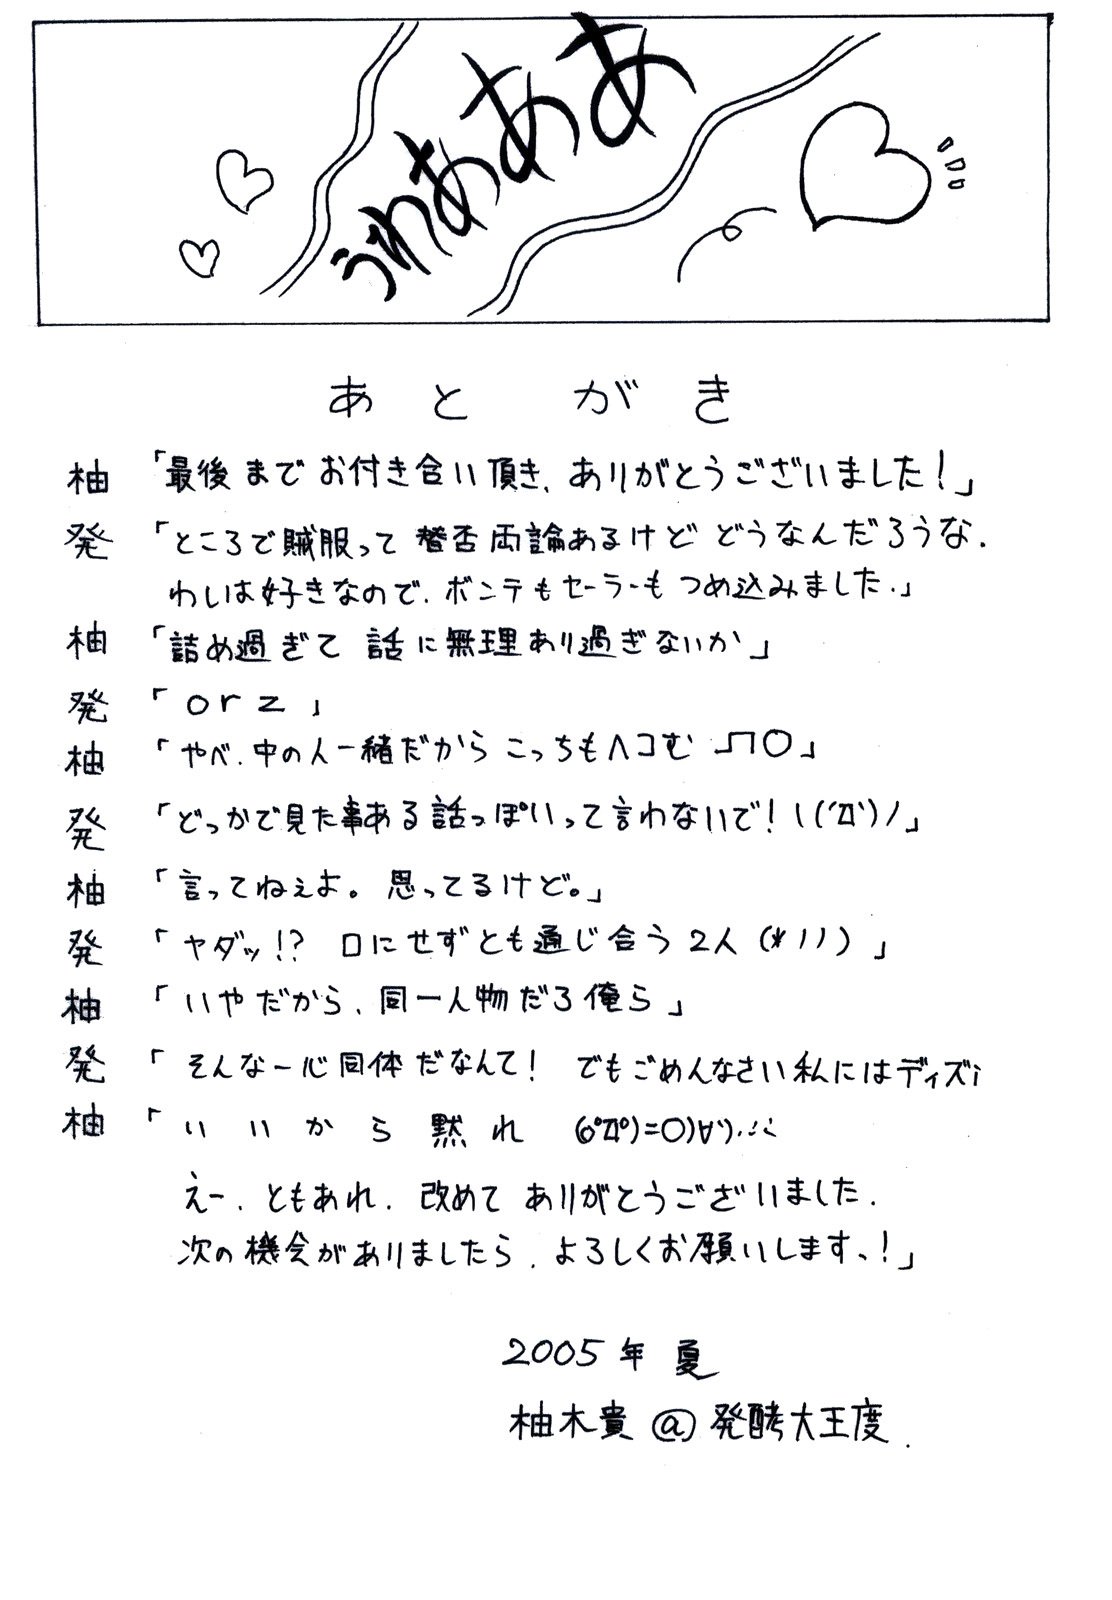 うわあああ
あとがき
柚「最後までお付き合い頂き、ありがとうございました！」
発「ところで賊服って賛否両論あるけどどうなんだろうな.
わしは好きなので、ボンテもセーラーもつめ込みました.」
柚「詰め過ぎて 話に無理あり過ぎないか」
発「orz」
柚「やべ、中の人一緒だからこっちもヘコむ _| ̄|○」
発「どっかで見た事ある話っぽいって言わないで！ヽ(´Д`)ノ」
柚「言ってねぇよ。思ってるけど。」
発「ヤダッ!? 口にせずとも通じ合う2人 (*ノノ)」
柚「いやだから、同一人物だろ俺ら」
発「そんな一心同体だなんて！ でもごめんなさい私にはディズi
柚「いいから黙れ (o゚Д゚)=○)∀`).∴:
えー、ともあれ、改めてありがとうございました.
次の機会がありましたら、よろしくお願いします、！」
2005年 夏
柚木貴@発酵大王度.